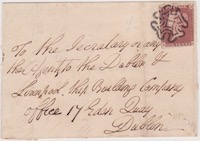 To the Secretary or any
ther Agent to the Dublin &
Liverpool Ship Building Company
office 17 Eden Quay
Dublin